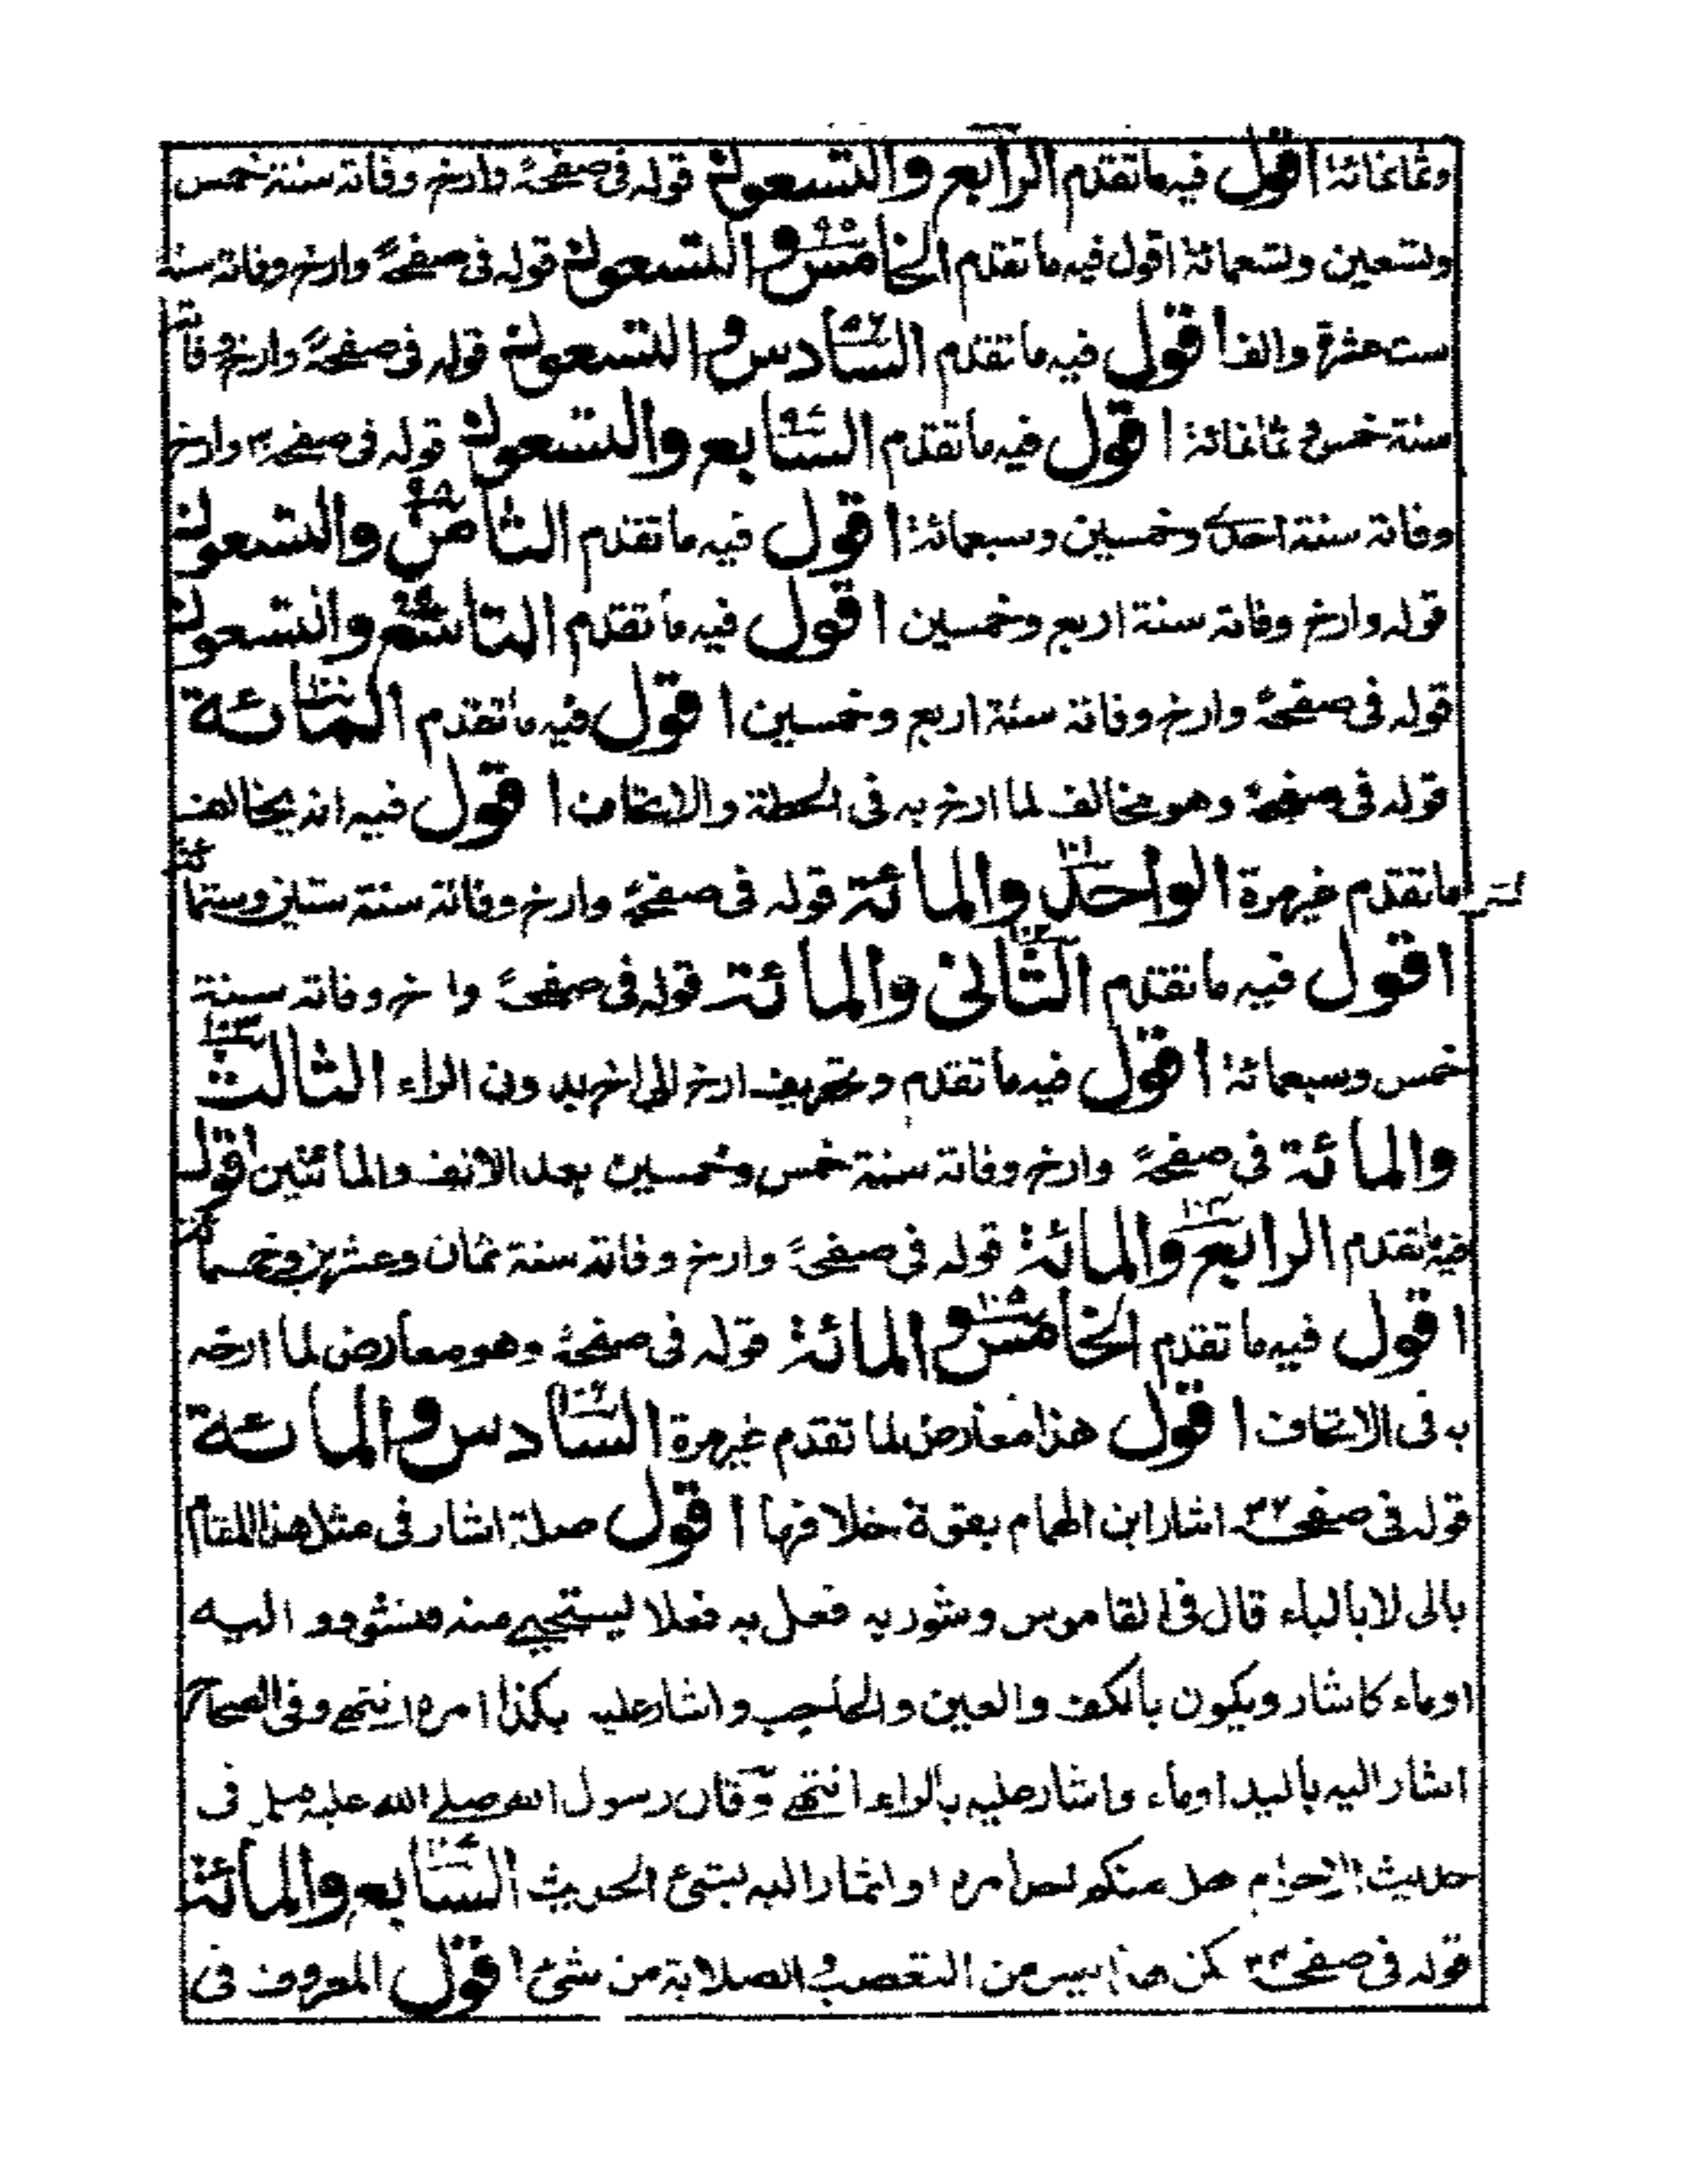 وثمانمائة اقول فيه ما تقدم الرابع والتسعون قوله فى صفحة وارخ وفاته سنة خمس
وتسعين وتسعمائة اقول فيه ما تقدم الخامس والتسعون قوله فى صفحة وارخ وفاته سنة
ست عشرة والف اقول فيه ما تقدم السادس والتسعون قوله فى صفحة وارخ وفاته
سنة خمس وثمانمائة اقول فيه ما تقدم السابع والتسعون قوله فى صفحة وارخ
وفاته سنة احدى وخمسين وسبعمائة اقول فيه ما تقدم الثامن والتسعون
قوله وارخ وفاته سنة اربع وخمسين اقول فيه ما تقدم التاسع والتسعون
قوله فى صفحة وارخ وفاته سنة اربع وخمسين اقول فيه ما تقدم المائة
قوله فى صفحة وهو مخالف لما ارخ به فى الحطة والاتحاف اقول فيه انه يخالف
ما تقدم غير مرة الواحد والمائة قوله فى صفحة وارخ وفاته سنة ستين وستمائة
اقول فيه ما تقدم الثانى والمائة قوله فى صفحة واخر وفاته سنة
خمس وسبعمائة اقول فيه ما تقدم وتحريف ارخ الى اخر بدون الراء الثالث
والمائة فى صفحة وارخ وفاته سنة خمس وخمسين بعد الالف والمائتين اقول
فيه ما تقدم الرابع والمائة قوله فى صفحة وارخ وفاته سنة ثمان وعشرين وخمسمائة
اقول فيه ما تقدم الخامس والمائة قوله فى صفحة وهو معارض لما ارخه
به فى الاتحاف اقول هذا معارض لما تقدم غير مرة السادس والمائة
قوله فى صفحة اشار ابن الهمام بقوة خلافها اقول صلة اشار فى مثل هذا المقام
بالى لا بالباء قال فى القاموس وشور به فعل به فعلا يستحيى منه فتشور واليه
اوماء كاشار ويكون بالكف والعين والحاجب واشار عليه بكذا امره انتهى وفى الصحاح
اشار اليه باليد اوماء واشار عليه بالراى انتهى وقال رسول الله صلى الله عليه وسلم فى
حديث الاحرام هل منكم احد امره او اشار اليه بشئ الحديث السابع والمائة
قوله فى صفحة لكن هذا ليس من التعصب والصلابة من شئ اقول المعروف فى